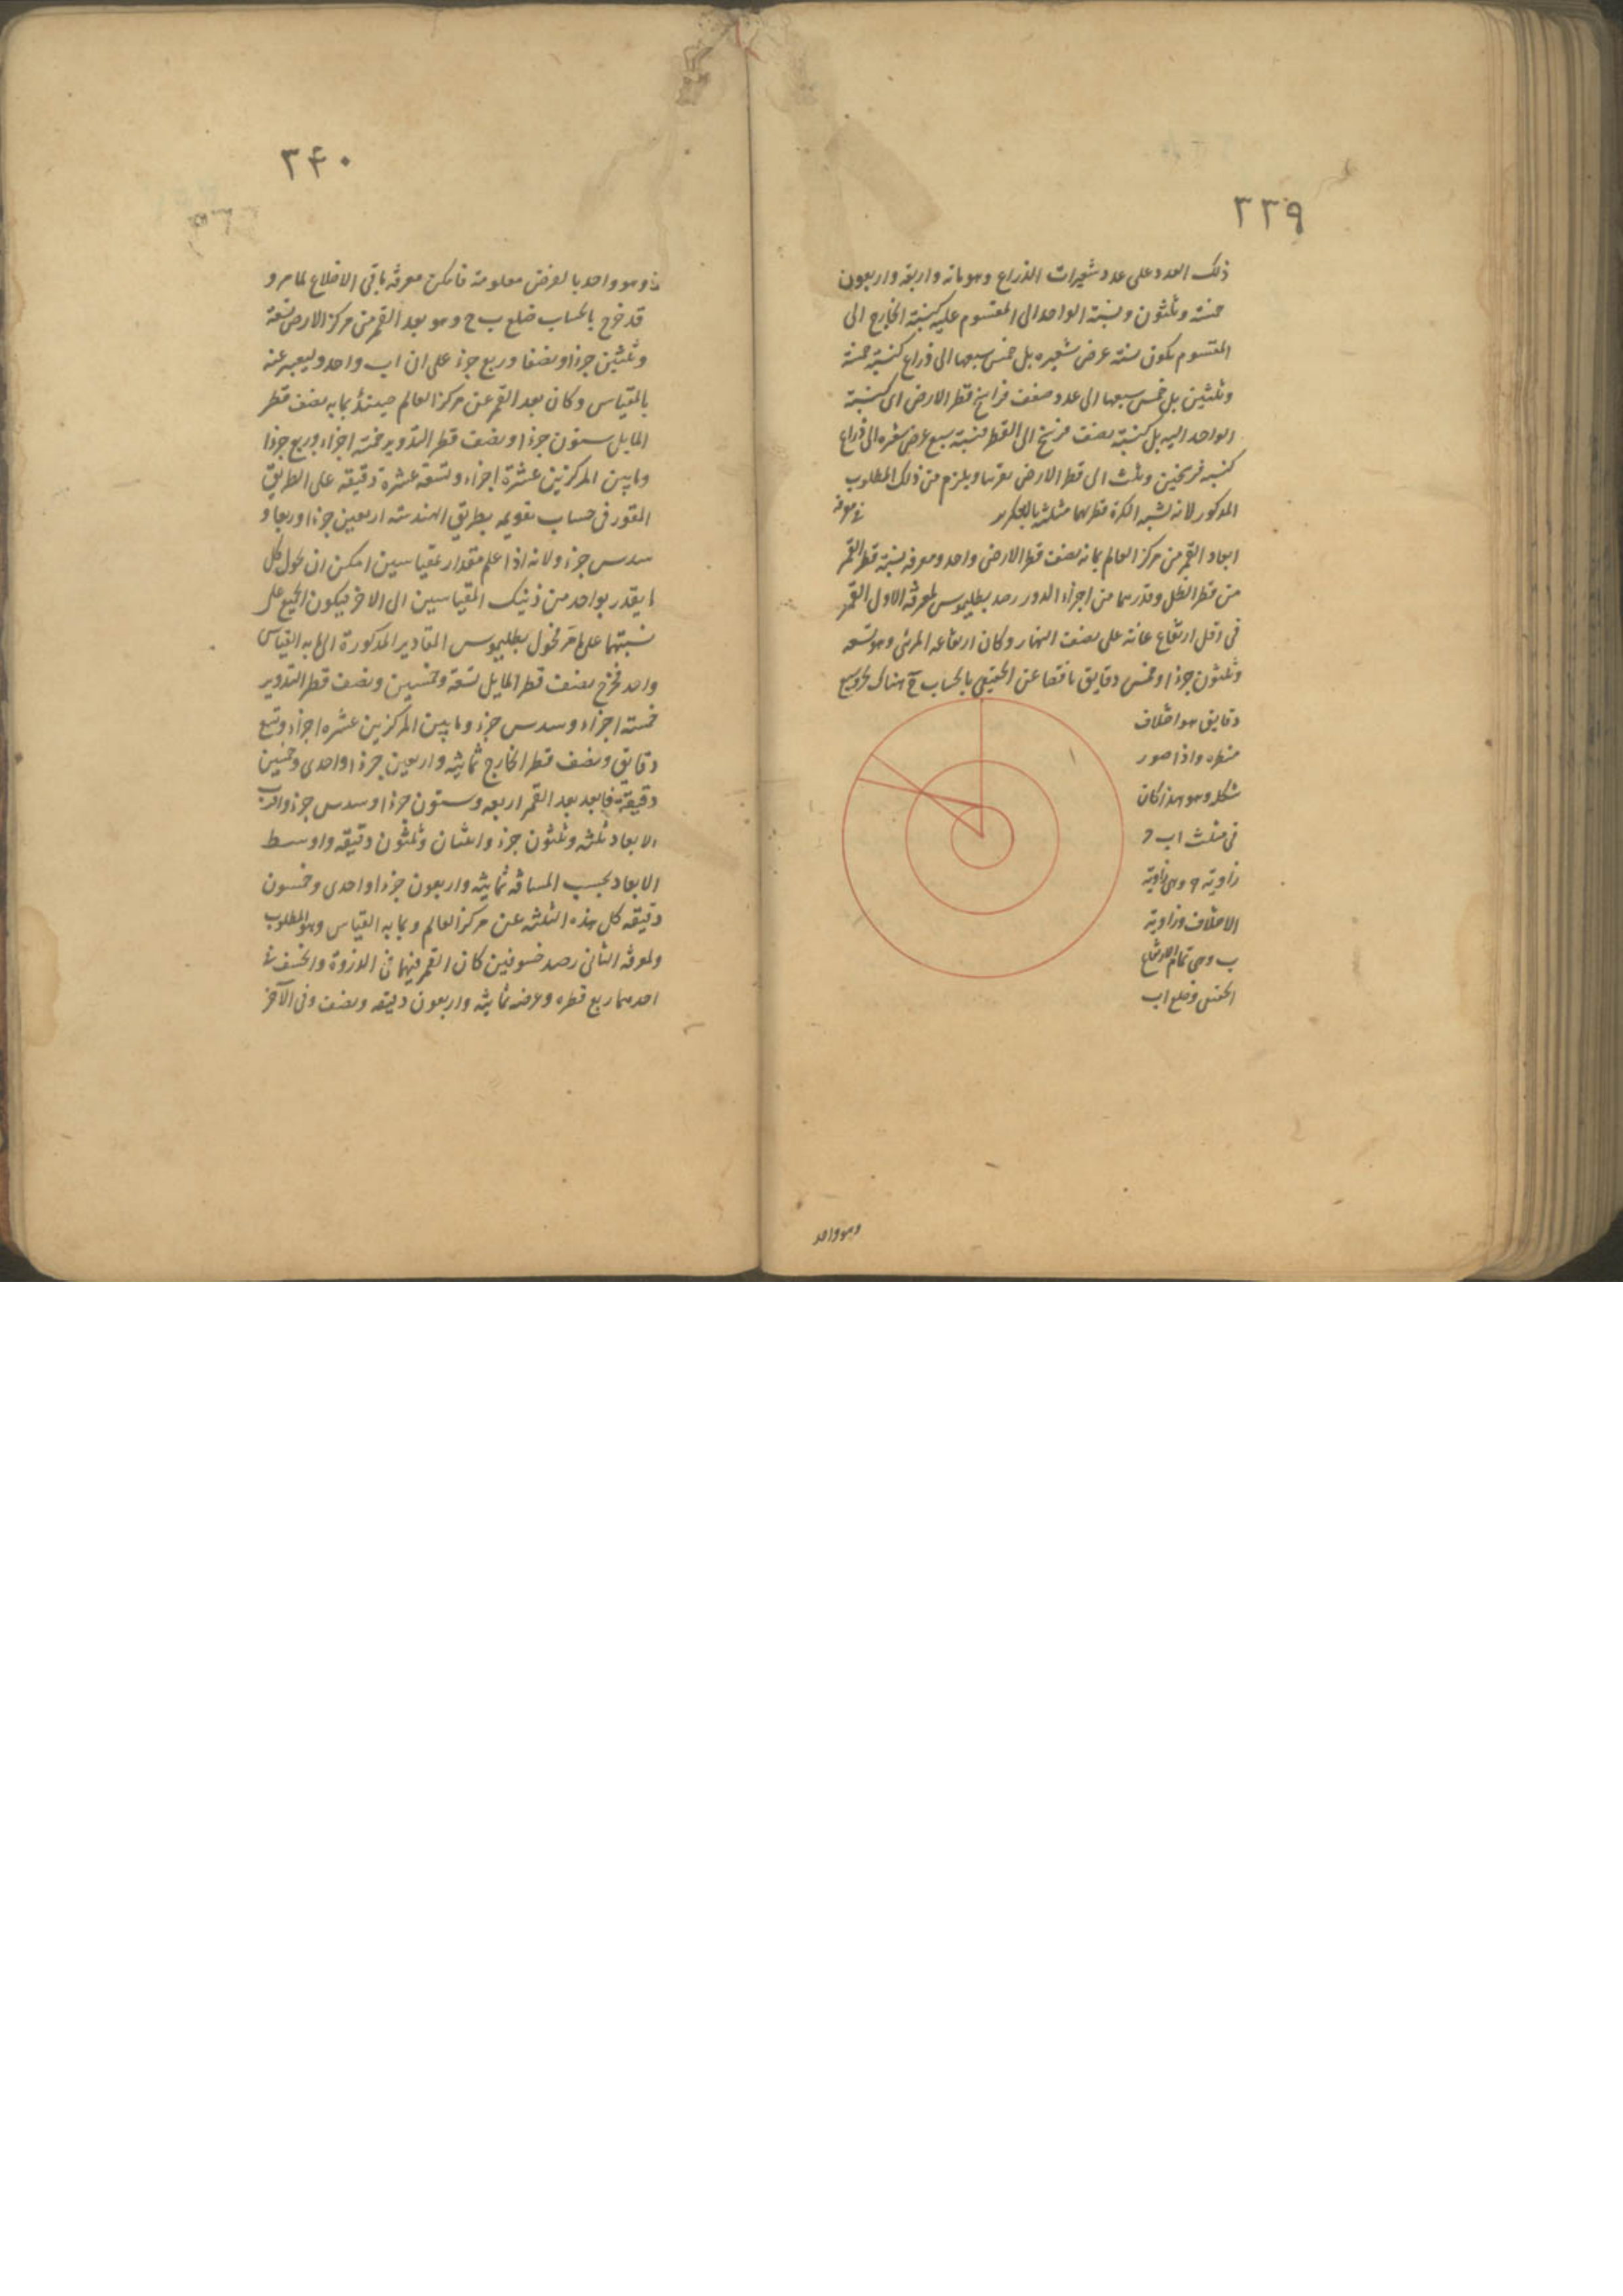 ٣٣٩
ذلك العدد على عدد شعيرات الذراع وهو مائه واربعه واربعون
خمسة وثلثون ونسبة الواحد الى المقسوم عليه كنسبة الخارج الى
المقسوم يكون نسبة عرض شعيره بل خمس سبعها الى ذراع كنسبة خمسة
وثلثين بل خمس سبعها الى عدد ضعف فراسخ قطر الارض اى كنسبة
الواحد اليه بل كنسبة نصف فرسخ الى القطر فنسبة سبع عرض شعيره الى ذراع
كنسبه فرسخين وثلث الى قطر الارض تقريبا ويلزم من ذلك المطلوب
المذكور لان نسبة الكرة قطريهما مثلثة بالتكرير فى معرفة
ابعاد القمر من مركز العالم بما به نصف قطر الارض واحد ومعرفه نسبة قطر القمر
من قطر الظل وقدرهما من اجزاء الدور رصد بطليموس لمعرفة الاول القمر
فى اقل ارتفاع غاية على نصف النهار وكان ارتفاعه المرئى وهو تسعه
وثلثون جزءا وخمس دقايق ناقصا عن الحقيقى بالحساب هناك بجزء وسبع
دقايق هو اختلاف
منظره واذا صور
شكله وهو هذا كان
فى مثلث اب ح
زاوية ح وهى زاوية
الاختلاف وزاوية
ب وهى تمام الارتفاع
الحقيقى وضلع اب
وهو واحد
٣۴٠
وهو واحد بالفرض معلومة فامكن معرفة باقى الاضلاع لما مر و
قد خرج بالحساب ضلع ب ح وهو بعد القمر من مركز الارض تسعة
وثلثين جزءا ونصفا وربع جزء على ان اب واحد وليعبر عنه
بالمقياس وكان بعد القمر عن مركز العالم حينئذ بما به نصف قطر
المايل ستون جزءا ونصف قطر التدوير خمسة اجزاء وربع جزءا
وما بين المركزين عشرة اجزاء وتسعة عشرة دقيقه على الطريق
المقرر فى حساب تقويمه بطريق الهندسة اربعين جزءا وربعا و
سدس جزء ولانه اذا علم مقدار بمقياسين امكن ان يحول كل
ما يقدر بواحد من ذينك المقياسين الى الاخر فيكون الجميع على
نسبتهما على ما مر فحول بطليموس المقادير المذكورة الى ما به القياس
واحد فخرج نصف قطر المايل تسعة وخمسين ونصف قطر التدوير
خمسة اجزاء وسدس جزء وما بين المركزين عشره اجزاء وتسع
دقايق ونصف قطر الخارج ثمانيه واربعين جزءا واحدى وخمسين
دقيقة فابعد بعد القمر اربعه وستون جزءا وسدس جزء واقرب
الابعاد ثلثه وثلثون جزء واثنان وثلثون دقيقه واوسط
الابعاد بحسب المسافه ثمانيه واربعون جزءا واحدى وخمسون
دقيقه كل هذه الثلثه عن مركز العالم وبما به القياس وهو المطلوب
ولمعرفة الثانى رصد خسوفين كان القمر فيهما فى الذروة وانخسف فى
احدهما ربع قطره وعرضه ثمانيه واربعون دقيقه ونصف وفى الآخر